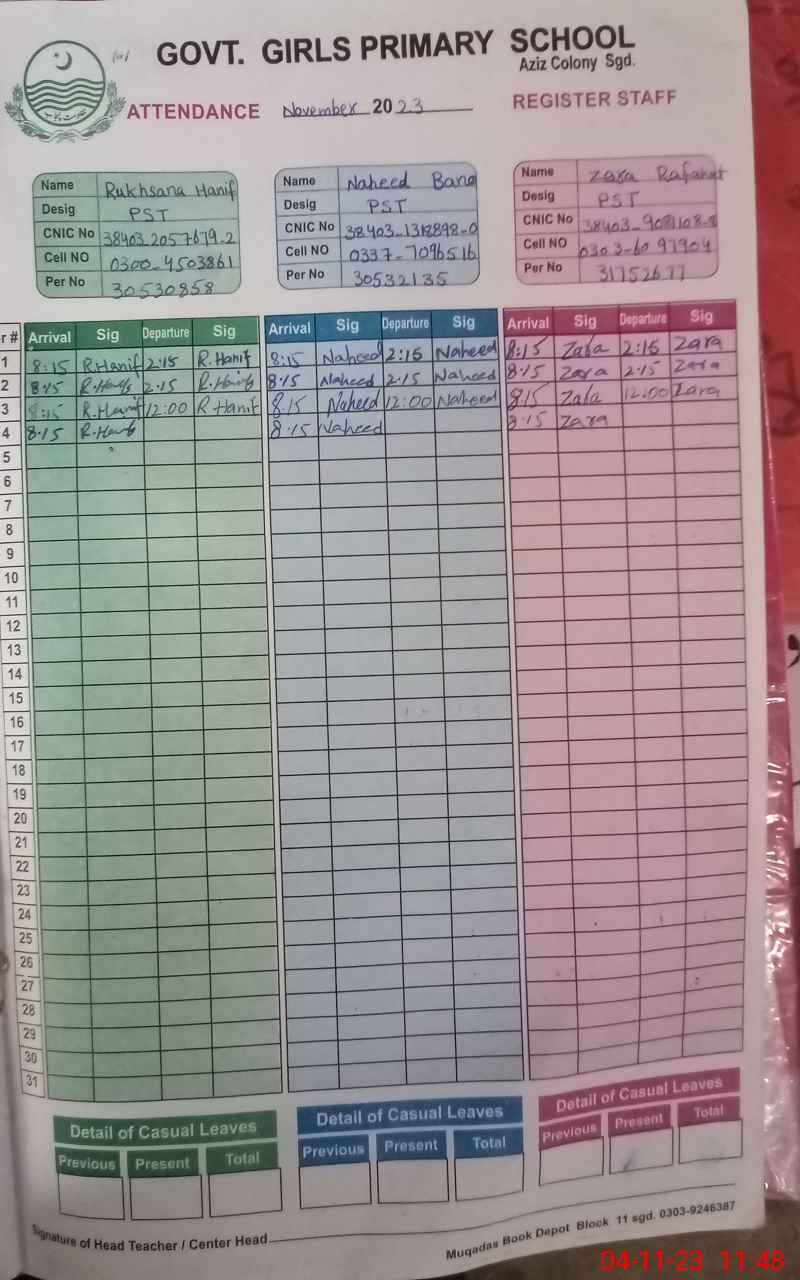 GOVT. GIRLS PRIMARY SCHOOL
Aziz Colony Sgd.
ATTENDANCE November 2023 REGISTER STAFF
Name Rukhsana Hanif
Desig PST
CNIC No 38403-2057679-2
Cell NO 0300-4503861
Per No 30530858
Name Naheed Bano
Desig PST
CNIC No
Cell NO 0337-7096516
Per No 30532135
Name Zara Rafahat
Desig PST
CNIC No
Cell NO 0303-6097904
Per No 31752677
r # Arrival Sig Departure Sig Arrival Sig Departure Sig Arrival Sig Departure Sig
1 8:15 R.Hanif 2:15 R.Hanif 8:15 Naheed 2:15 Naheed 8:15 Zara 2:15 Zara
2 8:15 R.Hanif 2.15 R.Hanif 8:15 Naheed 2.15 Naheed 8:15 Zara 2:15 Zara
3 8:15 R.Hanif 12:00 R.Hanif 8.15 Naheed 12:00 Naheed 8:15 Zara 12:00 Zara
4 8.15 R.Hanif 8.15 Naheed 8.15 Zara
5
6
7
8
9
10
11
12
13
14
15
16
17
18
19
20
21
22
23
24
25
26
27
28
29
30
31
Detail of Casual Leaves Detail of Casual Leaves Detail of Casual Leaves
Previous Present Total Previous Present Total Previous Present Total
Signature of Head Teacher / Center Head
Muqadas Book Depot Block 11 sgd. 0303-9246387
04-11-23 11:48